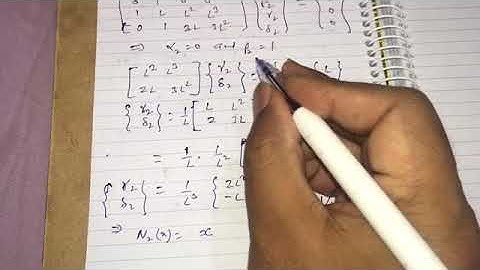 1 L L² L³
0 1 2L 3L²
γ₂
δ₂
0
0
⇒ α₂ = 0 and β₂ = 1
[ L² L³
2L 3L² ] { γ₂
δ₂ } =
{ γ₂
δ₂ } = 1/L [ L L²
2 3L
= 1/L · 1/L² [
{ γ₂
δ₂ } = 1/L³ { 2L²
-L
⇒ N₂(x) = x